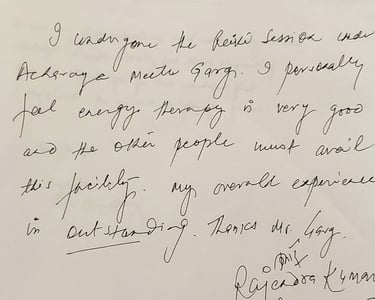 I undergone the Reiki Session under
Acharaya Meetu Garg. I personally
feel energy therapy is very good
and the other people must avail
this facility. My overall experience
is outstanding. Thanks Ms. Garg.
Rajendra Kumar